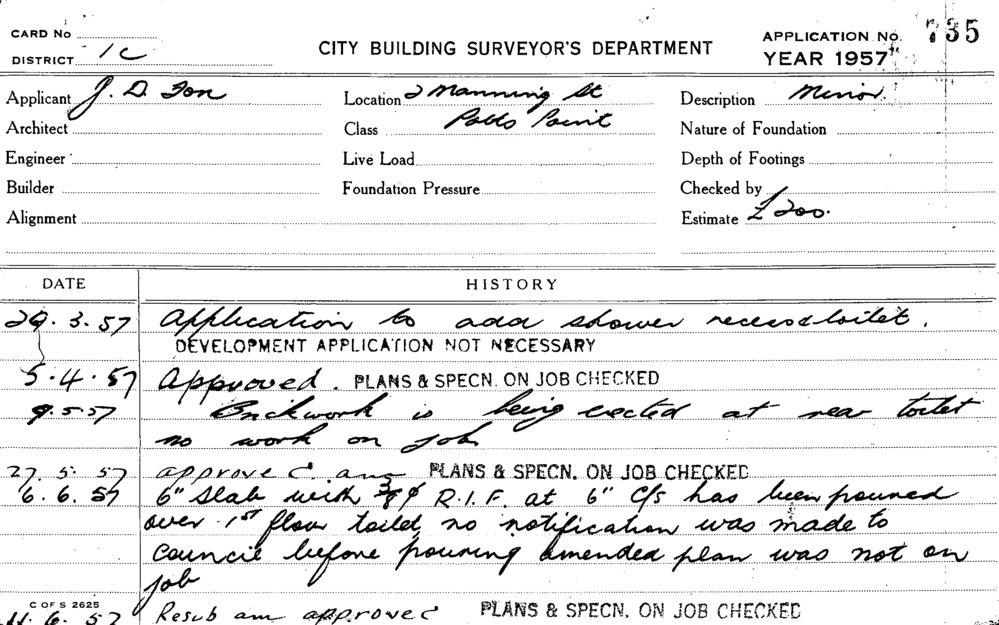 CARD No
CITY BUILDING SURVEYOR'S DEPARTMENT
APPLICATION No. 735
DISTRICT 1C
YEAR 1957
Applicant J. D. Fon
Location 2 Manning St
Description Minor.
Architect
Class Potts Point
Nature of Foundation
Engineer
Live Load
Depth of Footings
Builder
Foundation Pressure
Checked by
Alignment
Estimate £200.
DATE HISTORY
.3.57 Application to add shower recess & toilet.
DEVELOPMENT APPLICATION NOT NECESSARY
5.4.57 Approved. PLANS & SPECN. ON JOB CHECKED
9.5.57 Brickwork is being erected at rear toilet
no work on job
27.5.57 approved am PLANS & SPECN. ON JOB CHECKED
6.6.57 6" Slab with 3/8 ϕ R.I.F. at 6" C/s has been poured
over 1st floor toilet no notification was made to
council before pouring amended plan was not on
job
C OF S 2625
11.6.57 Resub am approved PLANS & SPECN. ON JOB CHECKED